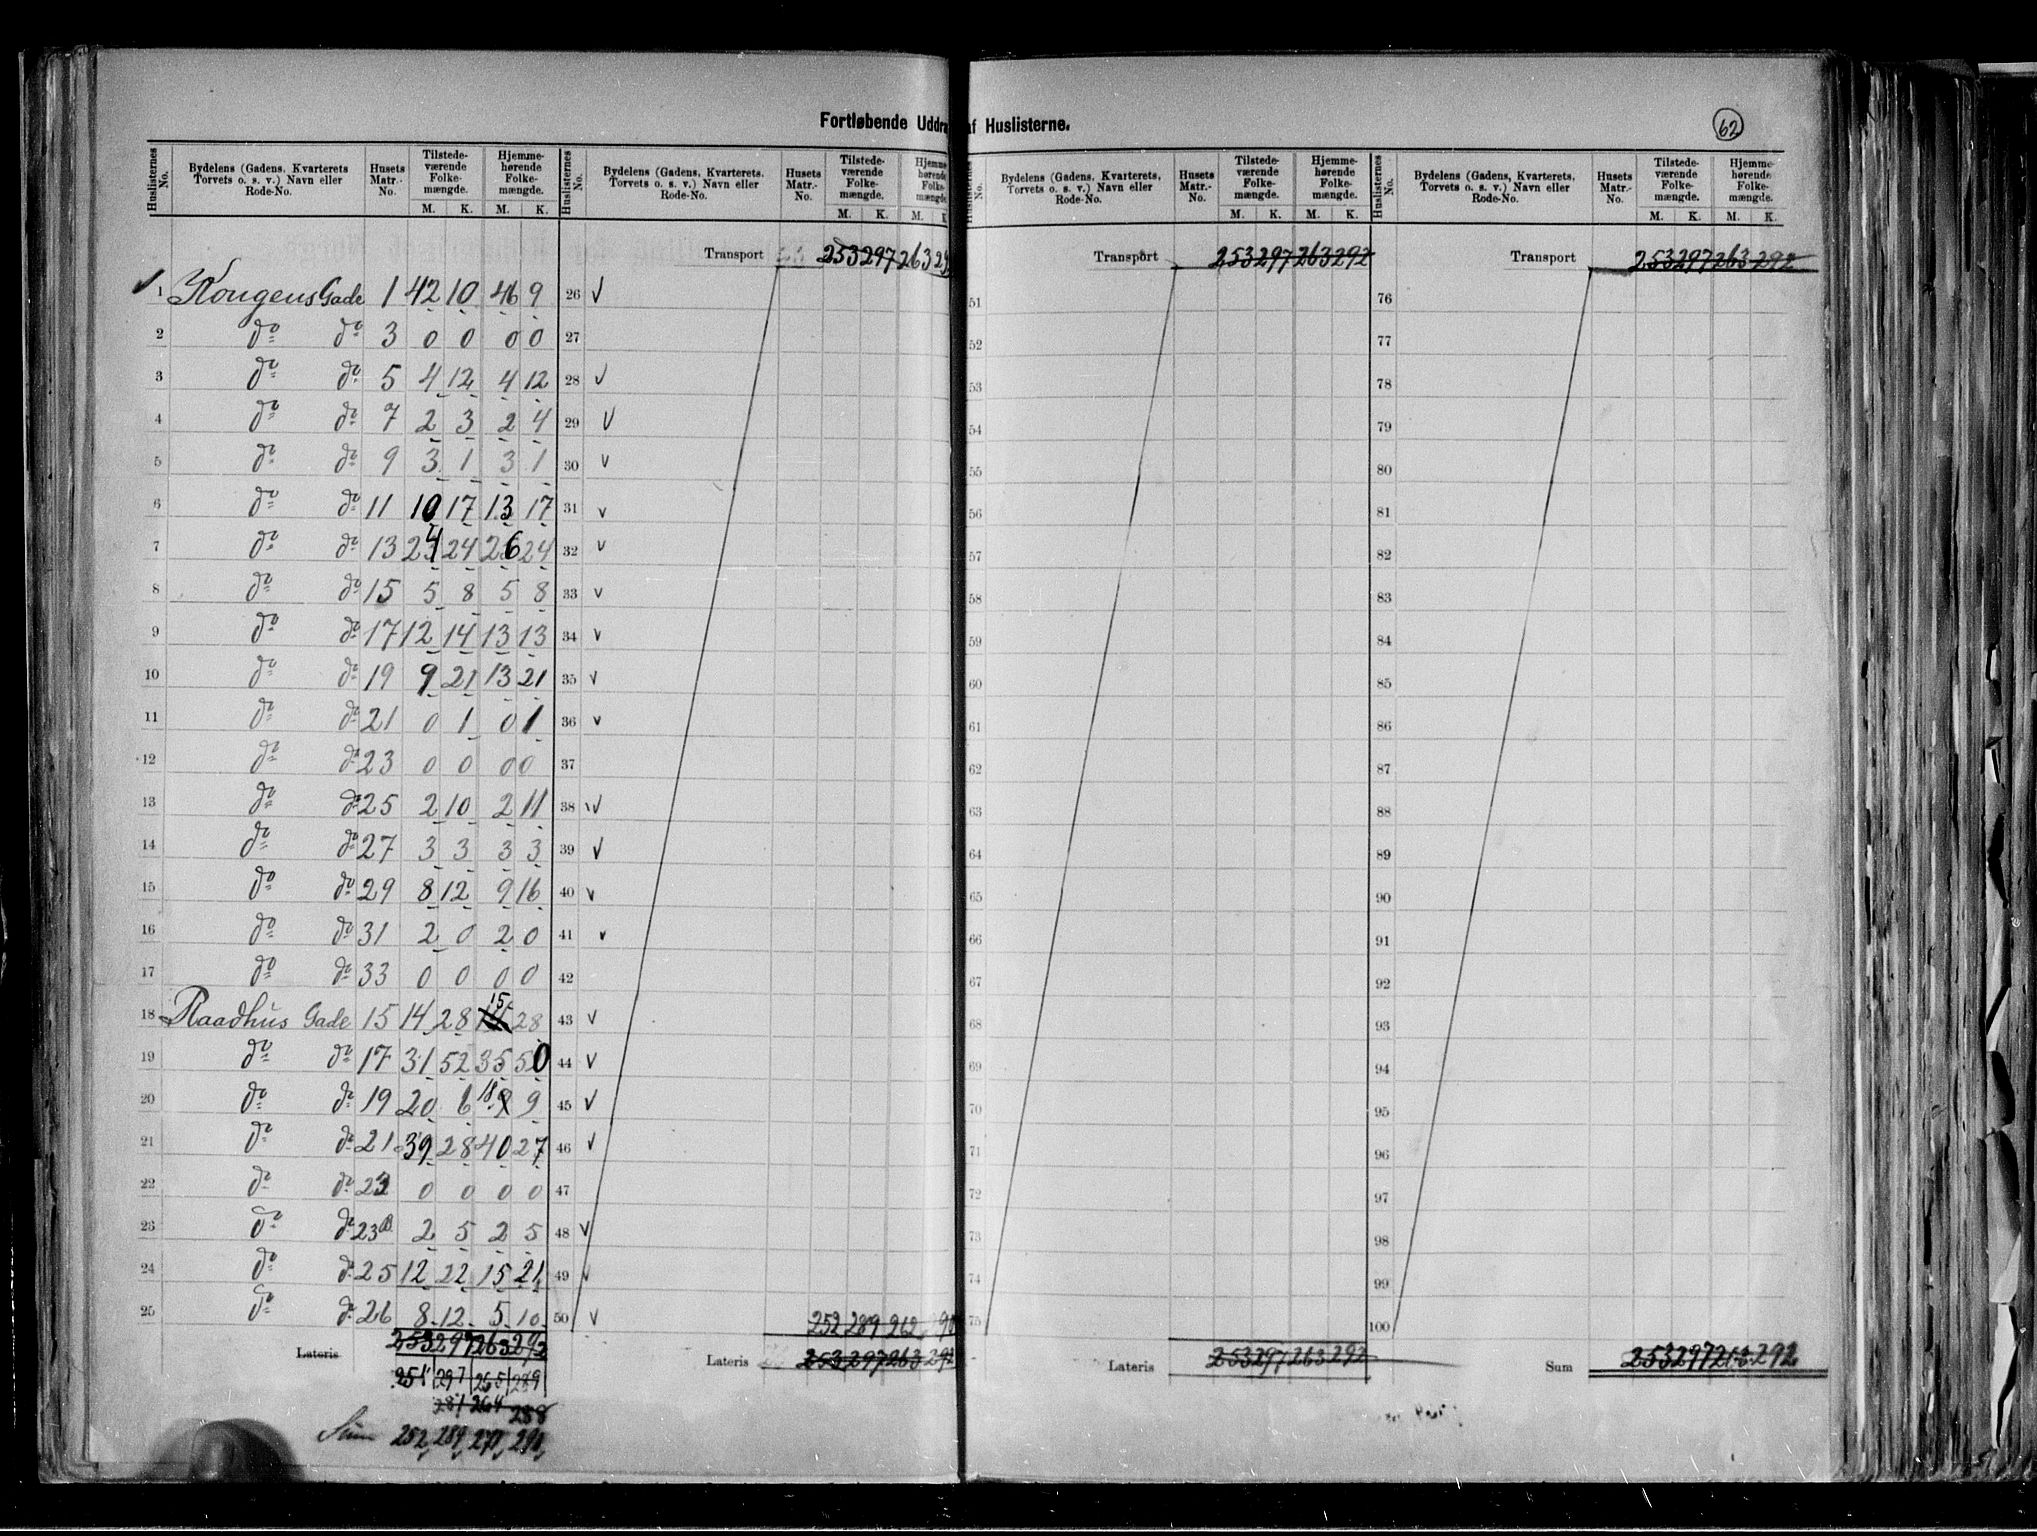 Fortløbende Uddra af Huslisterne.
62
Huslisternes No. Bydelens (Gadens, Kvarterets Torvets o. s. v.) Navn eller Rode-No. Husets Matr.-No. Tilstedeværende Folkemængde. M. K. Hjemmehørende Folkemængde. M. K.
Huslisternes No. Bydelens (Gadens, Kvarterets, Torvets o. s. v.) Navn eller Rode-No. Husets Matr.-No. Tilstedeværende Folkemængde. M. K. Hjemmehørende Folkemængde M.
No. Bydelens (Gadens, Kvarterets, Torvets o. s. v.) Navn eller Rode-No. Husets Matr.-No. Tilstedeværende Folkemængde. M. K. Hjemmehørende Folkemængde. M. K.
Huslisternes No. Bydelens (Gadens, Kvarterets, Torvets o. s. v.) Navn eller Rode-No. Husets Matr.-No. Tilstedeværende Folkemængde. M. K. Hjemmehørende Folkemængde. M. K.
1 Kongens Gade 1 42 10 46 9
2 do do 3 0 0 0 0
3 do do 5 4 12 4 12
4 do do 7 2 3 2 4
5 do do 9 3 1 3 1
6 do do 11 10 17 13 17
7 do do 13 24 24 26 24
8 do do 15 5 8 5 8
9 do do 17 12 14 13 13
10 do do 19 9 21 13 21
11 do do 21 0 1 0 1
12 do do 23 0 0 0 0
13 do do 25 2 10 2 11
14 do do 27 3 3 3 3
15 do do 29 8 12 9 16
16 do do 31 2 0 2 0
17 do do 33 0 0 0 0
18 Raadhus Gade 15 14 28 15 28
19 do do 17 31 52 35 50
20 do do 19 20 6 18 9
21 do do 21 39 28 40 27
22 do do 23 0 0 0 0
23 do do 23 2 5 2 5
24 do do 25 12 22 15 21
25 do do 26 8 12 5 10
Lateris 253 297 263 292
251 297 265 289
281 264 288
Sum 252 289 271 291
Transport 253 297 263 29
26 V
27
28 V
29 V
30 V
31 V
32 V
33 V
34 V
35 V
36 V
37
38 V
39 V
40 V
41 V
42
43 V
44 V
45 V
46 V
47
48 V
49 V
50 V 252 289 262 90
Lateris 253 297 263 292
Transport 253 297 263 292
51
52
53
54
55
56
57
58
59
60
61
62
63
64
65
66
67
68
69
70
71
72
73
74
75
Lateris 253 297 263 292
Transport 253 297 263 292
76
77
78
79
80
81
82
83
84
85
86
87
88
89
90
91
92
93
94
95
96
97
98
99
100
Sum 253 297 263 292